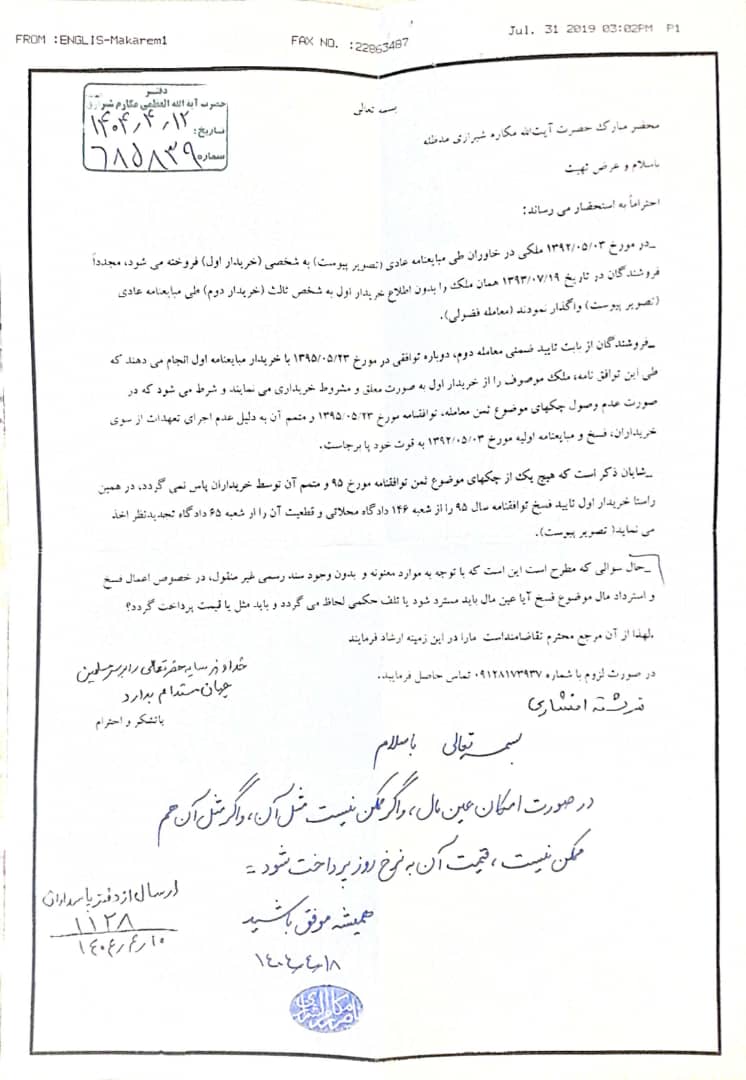 FROM :ENGLIS-Makarem1 FAX NO. :22863487 Jul. 31 2019 03:02PM P1
دفتر
حضرت آیة الله العظمی مکارم شیرازی
تاریخ: ۱۴۰۴٫۴٫۱۲
شماره ۶۸۵۸۳۹
بسمه تعالی
محضر مبارک حضرت آیت‌الله مکارم شیرازی مدظله
باسلام و عرض تهیت
احتراماً به استحضار می رساند:
_در مورخ ۱۳۹۲/۰۵/۰۳ ملکی در خاوران طی مبایعنامه عادی (تصویر پیوست) به شخصی (خریدار اول) فروخته می شود، مجدداً
فروشندگان در تاریخ ۱۳۹۳/۰۷/۱۹ همان ملک را بدون اطلاع خریدار اول به شخص ثالث (خریدار دوم) طی مبایعنامه عادی
(تصویر پیوست) واگذار نمودند (معامله فضولی).
_فروشندگان از بابت تایید ضمنی معامله دوم، دوباره توافقی در مورخ ۱۳۹۵/۰۵/۲۳ با خریدار مبایعنامه اول انجام می دهند که
طی این توافق نامه، ملک موصوف را از خریدار اول به صورت معلق و مشروط خریداری می نمایند و شرط می شود که در
صورت عدم وصول چکهای موضوع ثمن معامله، توافقنامه مورخ ۱۳۹۵/۰۵/۲۳ و متمم آن به دلیل عدم اجرای تعهدات از سوی
خریداران، فسخ و مبایعنامه اولیه مورخ ۱۳۹۲/۰۵/۰۳ به قوت خود پا برجاست.
_شایان ذکر است که هیچ یک از چکهای موضوع ثمن توافقنامه مورخ ۹۵ و متمم آن توسط خریداران پاس نمی گردد، در همین
راستا خریدار اول تایید فسخ توافقنامه سال ۹۵ را از شعبه ۱۴۶ دادگاه محلاتی و قطعیت آن را از شعبه ۶۵ دادگاه تجدیدنظر اخذ
می نماید( تصویر پیوست).
_حال سوالی که مطرح است این است که با توجه به موارد معنونه و بدون وجود سند رسمی غیر منقول، در خصوص اعمال فسخ
و استرداد مال موضوع فسخ آیا عین مال باید مسترد شود یا تلف حکمی لحاظ می گردد و باید مثل یا قیمت پرداخت گردد؟
.لهذا از آن مرجع محترم تقاضامنداست مارا در این زمینه ارشاد فرمایند
در صورت لزوم با شماره ۰۹۱۲۸۱۷۳۹۳۷ تماس حاصل فرمایید..
خداوند سایه حضرتعالی را بر سر مسلمین
جهان مستدام بدارد
باتشکر و احترام
فرشته افشاری
بسمه تعالی باسلام
در صورت امکان عین مال، واگر ممکن نیست مثل آن، واگر مثل آن هم
ممکن نیست، قیمت آن به نرخ روز پرداخت شود =
همیشه موفق باشید
۱۴۰۴٫۴٫۱۸
ارسال از دفتر پاسداران
۱۱۲۸
۱۴۰۴٫۴٫۱۰